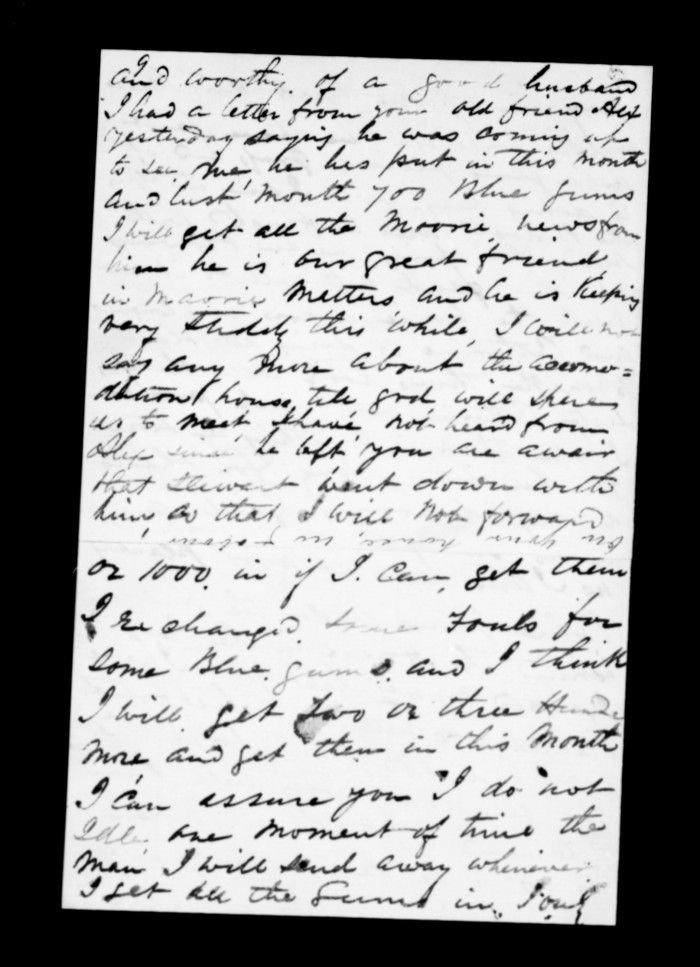 and worthy of a good husband
I had a letter from your old friend Alex
yesterday saying he was coming up
to see me he has put in this month
and last month 700 Blue Gums
I will get all the Maorie news from
him he is our great friend
in Maorie Matters and he is Keeping
very Studdy this while I will not
say any more about the accomo=
dation house till god will spere
us to meet I have not heard from
Alex since he left you are awair
that Stewart went down with
him so that I will not forward
or 1000 in if I can get them
I exchanged some Fouls for
some Blue gums and I think
I will get two or three Hundr
more and get them in this Month
I can assure you I do not
Idle one moment of time the
man I will send away whenever
I get all the Gums in